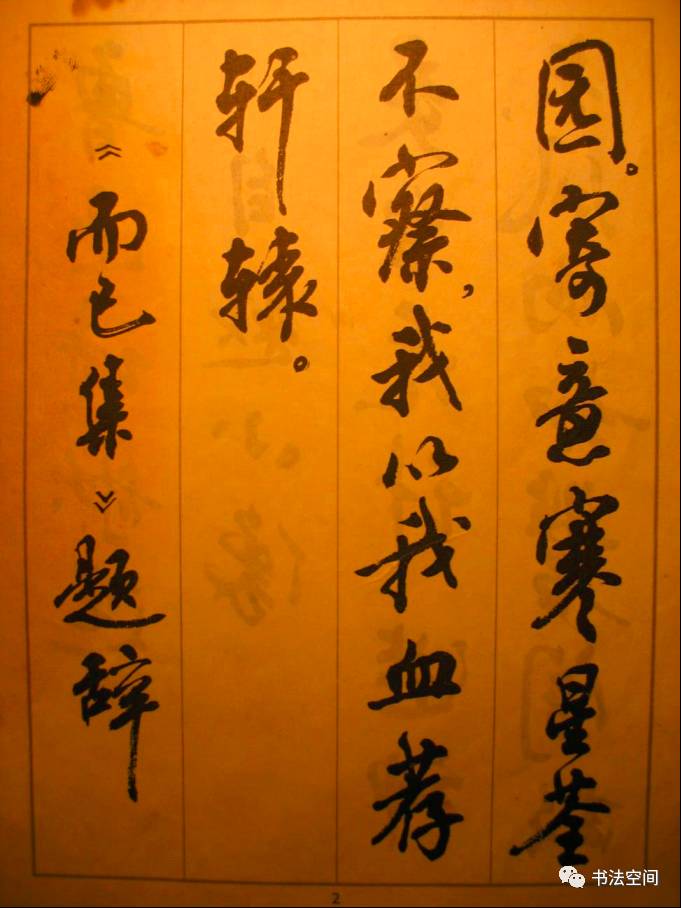 园。寄意寒星荃
不察，我以我血荐
轩辕。
《而已集》题辞
2
书法空间